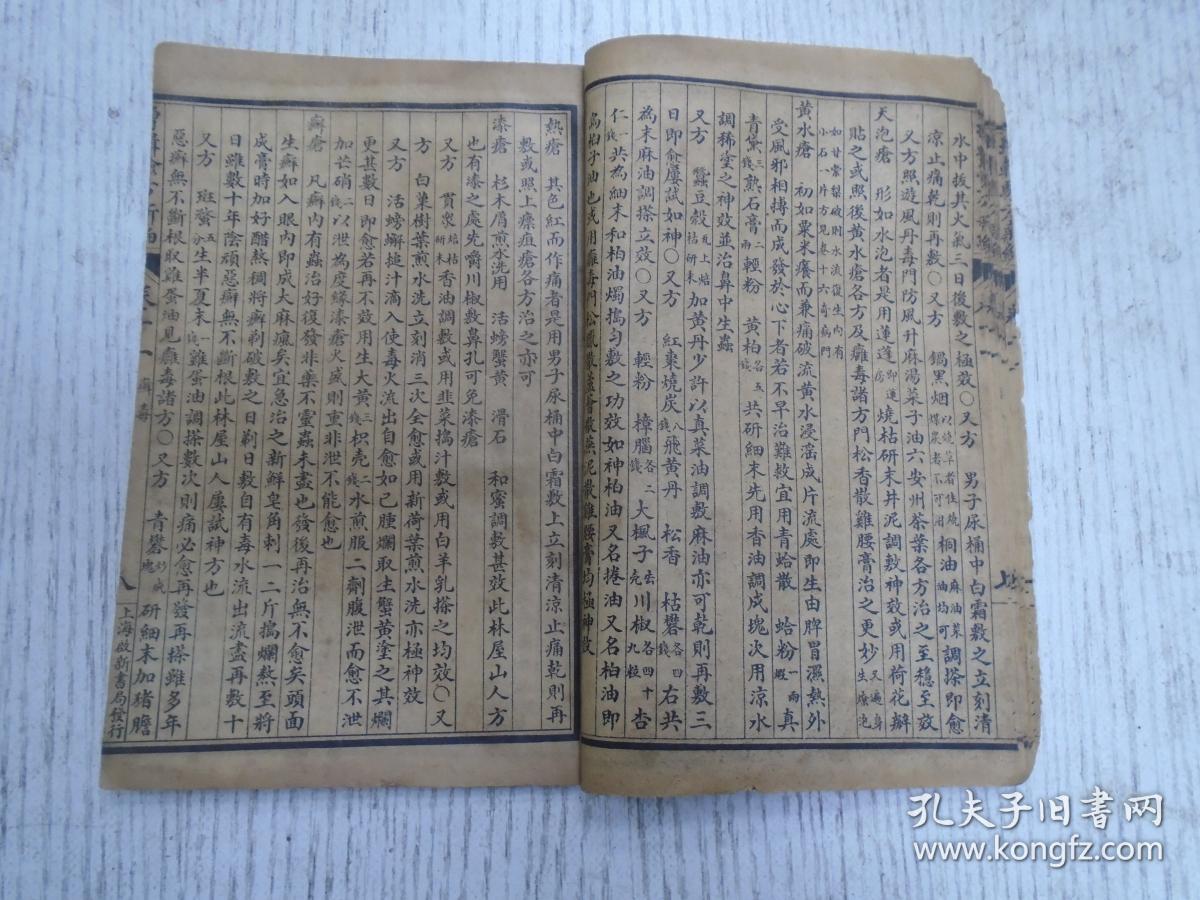 水中拔其火氣三日後敷之極效〇又方　男子尿桶中白霜敷之立刻清
涼止痛乾則再敷〇又方　鍋黑烟以燒草者佳燒煤炭者不可用桐油麻油菜油均可調搽即愈
又方照遊風丹毒門防風升麻湯菜子油六安州茶葉各方治之至穩至效
天泡瘡　形如水泡者是用蓮蓬即蓮房燒枯研末井泥調敷神效或用荷花瓣
貼之或照後黃水瘡各方及癰毒諸方門松香散雞腰膏治之更妙又遍身生療泡
如甘棠梨破則水流復生肉有小石一片方見卷十六奇病門
黃水瘡　初如粟米癢而兼痛破流黃水浸淫成片流處即生由脾胃濕熱外
受風邪相搏而成發於心下者若不早治難救宜用青蛤散　蛤粉一兩煆真
青黛三錢熟石膏一兩輕粉　黃柏各五錢共研細末先用香油調成塊次用涼水
調稀塗之神效並治鼻中生蟲
又方　蠶豆殼瓦上焙枯研末加黃丹少許以真菜油調敷麻油亦可乾則再敷三
日即愈屢試如神〇又方　紅棗燒炭八錢飛黃丹　松香　枯礬各四錢右共
為末麻油調搽立效〇又方　輕粉　樟腦各二錢大楓子去壳川椒各四十九粒杏
仁一錢共為細末和柏油燭搗勻敷之功效如神柏油又名捲油又名桕油即
烏桕子油也或用癰毒門松黴散蘆薈散蕪泥散雞腰膏均極神效
熱瘡　其色紅而作痛者是用男子尿桶中白霜敷上立刻清涼止痛乾則再
敷或照上瘭疽瘡各方治之亦可
漆瘡　杉木屑煎水洗用　活螃蟹黃　滑石　和蜜調敷甚效此林屋山人方
也有漆之處先嚼川椒敷鼻孔可免漆瘡
又方　貫眾焙枯研末香油調敷或用韮菜搗汁敷或用白羊乳搽之均效〇又
方　白菓樹葉煎水洗立刻消三次全愈或用新荷葉煎水洗亦極神效
又方　活螃蠏搥汁滴入使毒火流出自愈如已腫爛取生蟹黃塗之其爛
更甚數日即愈若再不效用生大黃三錢枳壳二錢水煎服二劑腹泄而愈不泄
加芒硝二錢以泄為度緣漆瘡火盛則重非泄不能愈也
癬瘡　凡癬內有蟲治好復發非藥不靈蟲未盡也發後再治無不愈矣頭面
生癬如入眼內即成大麻瘋矣宜急治之新鮮皂角刺一二斤搗爛熬至將
成膏時加好醋熬稠將癬剃破敷之日剃日敷自有毒水流出流盡再敷十
日雖數十年陰頑惡癬無不斷根此林屋山人屢試神方也
又方　斑蝥五分生半夏末一錢雞蛋油調搽數次則痛必愈再發再搽雖多年
惡癬無不斷根取雞蛋油見癰毒諸方〇又方　青礬炒成塊研細末加猪膽
癬毒
八
上海啟新書局發行
孔夫子旧书网
www.kongfz.com